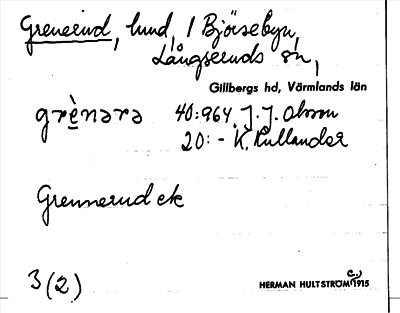 Grenerud, lund, / Björsebyn,
Långseruds sn,
Gillbergs hd, Värmlands län
grènərə 40:964 J. J. Olsson
20: - K. Kullander
Grennerud ek
3 (2)
HERMAN HULTSTRÖM c. 1915